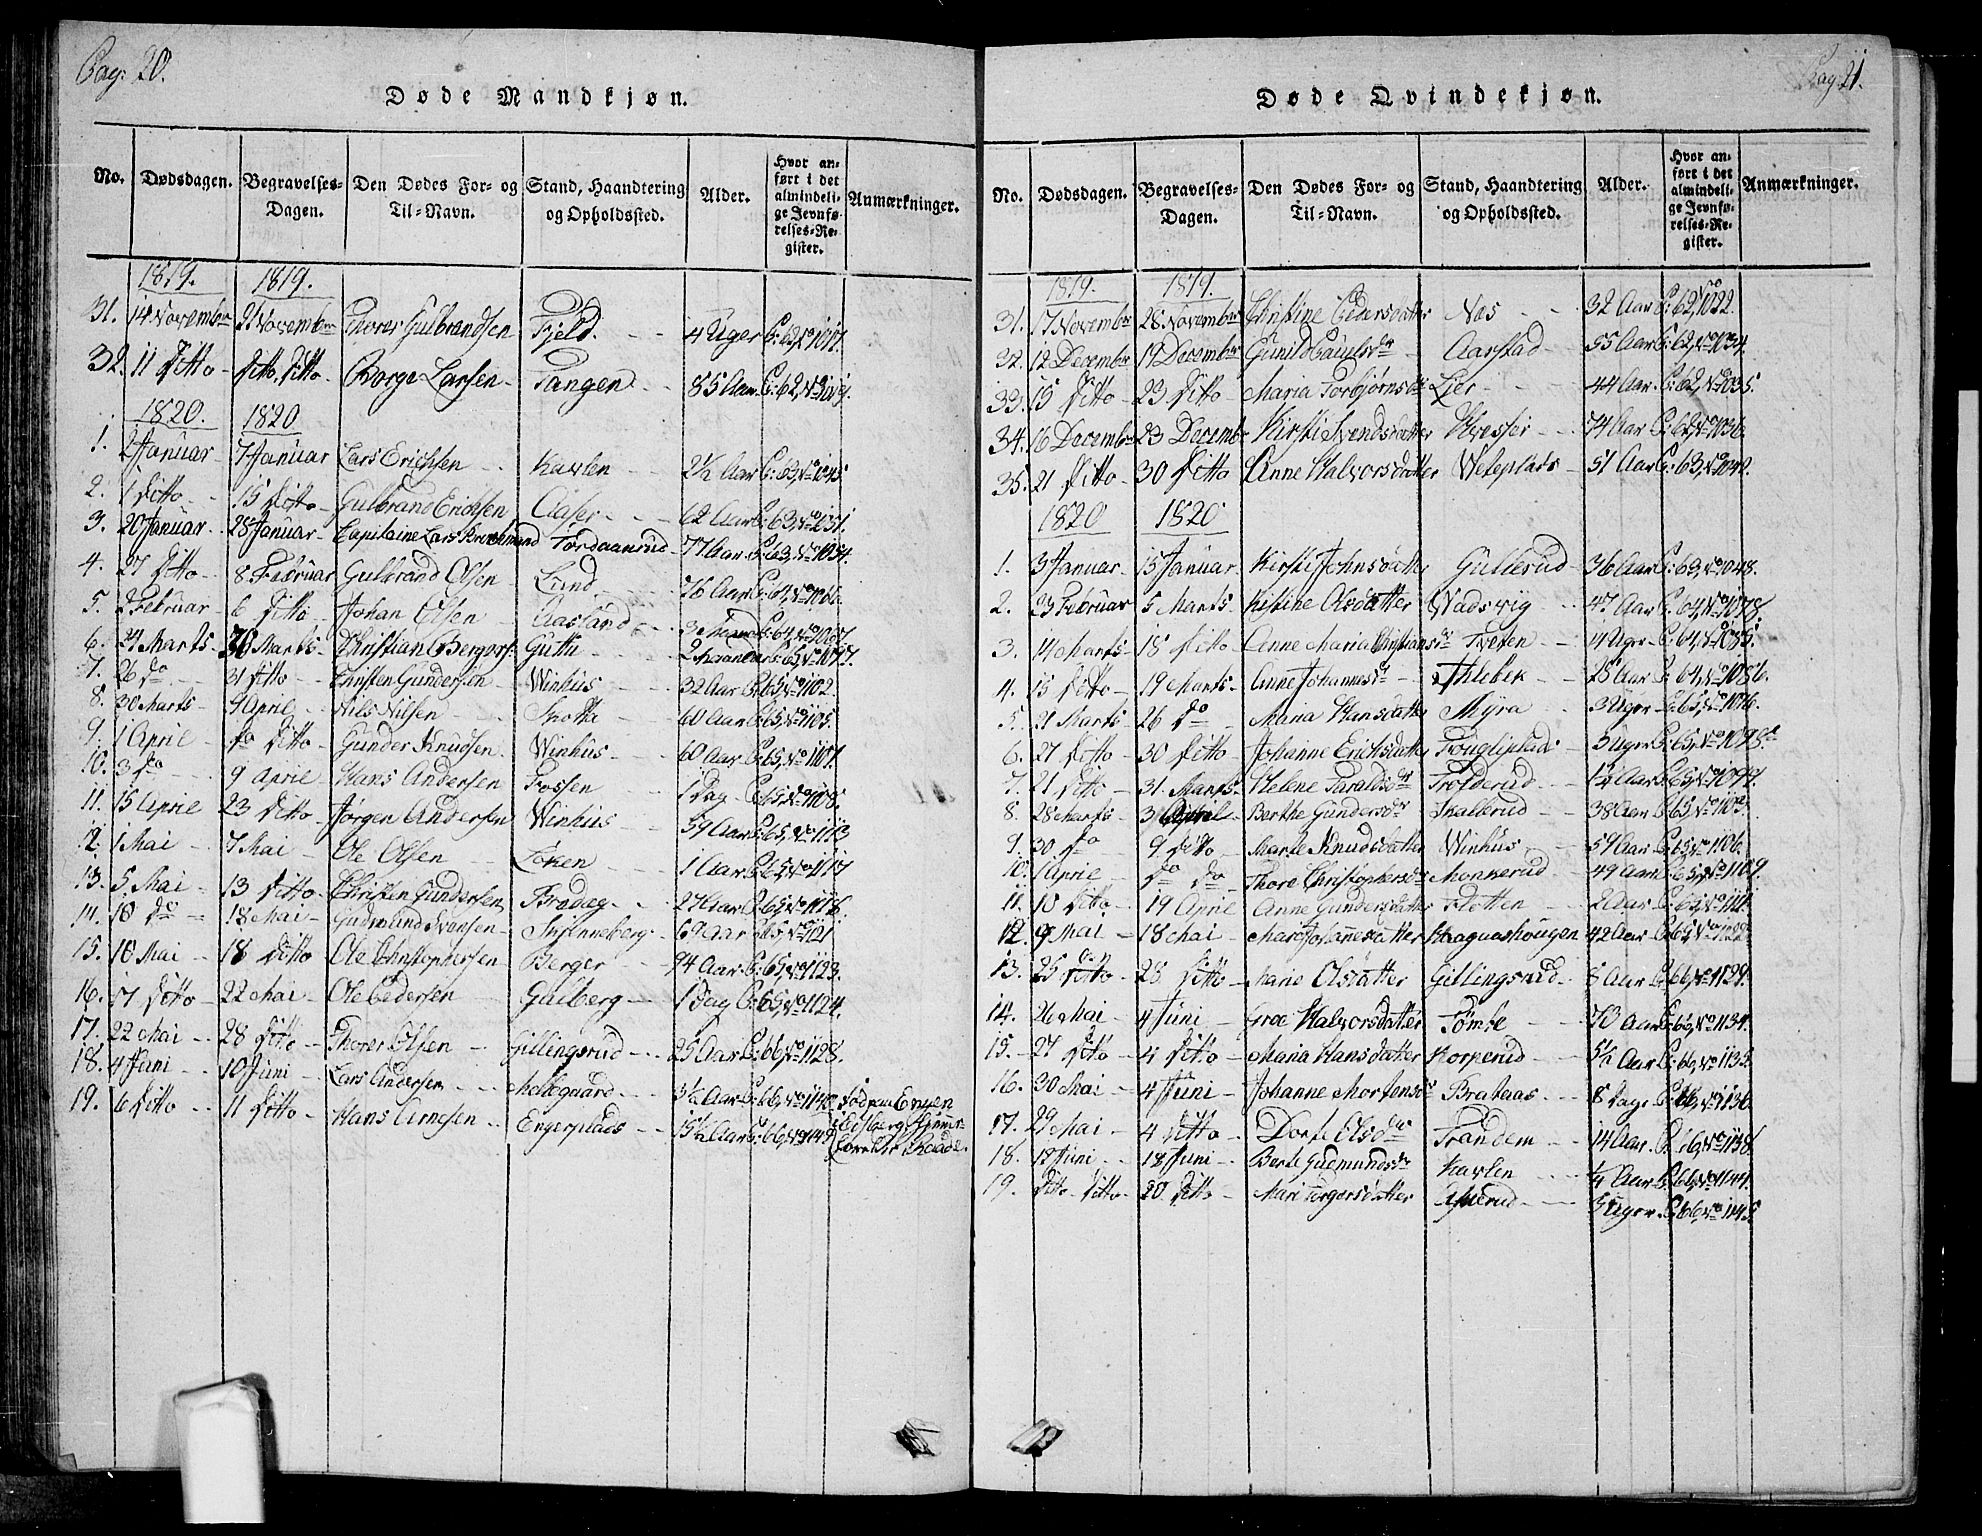 Pag: 20.
Døde Mandkjøn.
No. Dødsdagen. Begravelses-Dagen. Den Dødes For- og Til-Navn. Stand, Haandtering og Opholdssted. Alder. Hvor anført i det almindelige Jevnførelses-Register. Anmærkninger.
1819. 1819.
31. 14 November 21 November Thorer Gulbrandsen Fjeld. 4 Uger P: 62, No 1017.
32. 11 Ditto Ditto Ditto Borge Larsen Tangen 85 Aar P: 62, No
1820. 1820
1. 2 Januar 7 Januar Lars Erichsen Kavlen 2 1/2 Aar P: 63, No 1045.
2. 1 Ditto 15 Ditto Gulbrand Erichsen Aaser 62 Aar P: 63, No 1051.
3. 20 Januar 28 Januar Capitaine Lars Tordaanrud 77 Aar P: 63, No 1054.
4. 27 Ditto 8 Februar Gulbrand Olsen Lund 76 Aar P: 64, No 1066.
5. 2 Februar 6 Ditto Johan Olsen Aasland 3 P: 64, No 1067.
6. 24 Marts Marts Christian Guttu 2 Maaneder P: 65, No 1097.
7. 26 do 31 Ditto Christen Gundersen Winhus 32 Aar P: 65, No 1102.
8. 30 Marts 9 April Nils Nilsen Snotta 60 Aar P: 65, No 1105.
9. 1 April do Ditto Gunder Knudsen Winhus 60 Aar P: 65, No 1107.
10. 3 do 9 April Hans Andersen Fossen 1 Dag P: 65, No 1108.
11. 15 April 23 Ditto Jørgen Andersen Winhus 59 Aar P: 65, No 1113
12. 1 Mai 7 Mai Ole Olsen Loken 1 Aar P: 65, No 1117
13. 5 Mai 13 Ditto Christen Gundersen Bradeg 27 Aar P: 65, No 1116.
14. 10 do 18 Mai Gudmund Svensen 69 Aar P: 65, No 1121
15. 16 Mai 18 Ditto Ole Christophersen Berger 94 Aar P: 65, No 1123.
16. 17 Ditto 22 Mai Ole Pedersen Gulberg 1 Dag P: 65, No 1124.
17. 22 Mai 28 Ditto Thorer Olsen Gillingsrud 25 Aar P: 66, No 1128.
18. 4 Juni 10 Juni Lars Andersen Mellegaard 3 1/2 Aar P: 66, No 1140.
19. 6 Ditto 11 Ditto Hans Arnesen Engerplads 15 1/2 Aar P: 66, No 1143
Pag 21.
Døde Qvindekjøn.
No. Dødsdagen. Begravelses-Dagen. Den Dødes For- og Til-Navn. Stand, Haandtering og Opholdssted. Alder. Hvor anført i det almindelige Jevnførelses-Register. Anmærkninger.
1819. 1819.
31. 17 November 28 November Christine Pedersdatter Næs 32 Aar P: 62, No 1022.
32. 12 December 19 December Gunild Paulsdr Aarstad 55 Aar P: 62, No 1034.
33. 15 Ditto 23 Ditto Maria Torbjørnsdr Lier 44 Aar P: 62, No 1035.
34. 16 December 23 December Kirsti Svendsdatter 74 Aar P: 62, No 1036.
35. 21 Ditto 30 Ditto Anne Halvorsdatter Weteplads 51 Aar P: 63, No 1040.
1820 1820
1. 3 Januar 15 Januar Kirsti Johnsdatter Gullerud 36 Aar P: 63, No 1048.
2. 23 Februar 5 Marts Kistine Olsdatter Wadswig 47 Aar P: 64, No 1078.
3. 14 Marts 18 Ditto Anne Maria Christiansdr Tveten 4 Uger P: 64, No 1085.
4. 15 Ditto 19 Marts Anne Johannesdr 28 Aar P: 64, No 1086.
5. 21 Marts 26 do Maria Hansdatter Myra 3 Uger P: 65, No 1096.
6. 27 Ditto 30 Ditto Johanne Erichsdatter 5 Uger P: 65, No 1098.
7. 21 Ditto 31 Marts Helene Haraldsdr Trolderud 1 1/2 Aar P: 65, No 1099.
8. 28 Marts 3 April Berthe Gundersdr Skallerud 38 Aar P: 65, No 1103.
9. 30 do 9 Ditto Marte Knudsdatter Winhus 59 Aar P: 65, No 1106.
10. 1 April do do Thore Christophersdr Monnerud 49 Aar P: 65, No 1109.
11. 10 Ditto 19 April Anne Gundersdatter Flotten 2 Aar P: 65, No 1111.
12. 9 Mai 18 Mai Mare Johannesdatter Haaguashougen 42 Aar P: 65, No 1122
13. 25 Ditto 28 Ditto Marie Olsdatter Gillingsrud 5 Aar P: 66, No 1129.
14. 26 Mai 4 Juni Groe Halvorsdatter Tømte 70 Aar P: 66, No 1134.
15. 27 Ditto 4 Ditto Maria Hansdatter Korperud 5 1/2 Aar P: 66, No 1135.
16. 30 Mai 4 Juni Johanne Mortensdr Brataas 8 Dage P: 66, No 1136.
17. 29 Mai 4 Ditto Dorte Olsdr Trandem 14 Aar P: 66, No 1138.
18. 12 Juni 18 Juni Berte Gudmundsdr Kavlen 1/4 Aar P: 66, No 1144.
19. Ditto Ditto 20 Ditto Mari Torgersdatter 3 Uger P: 66, No 1145.